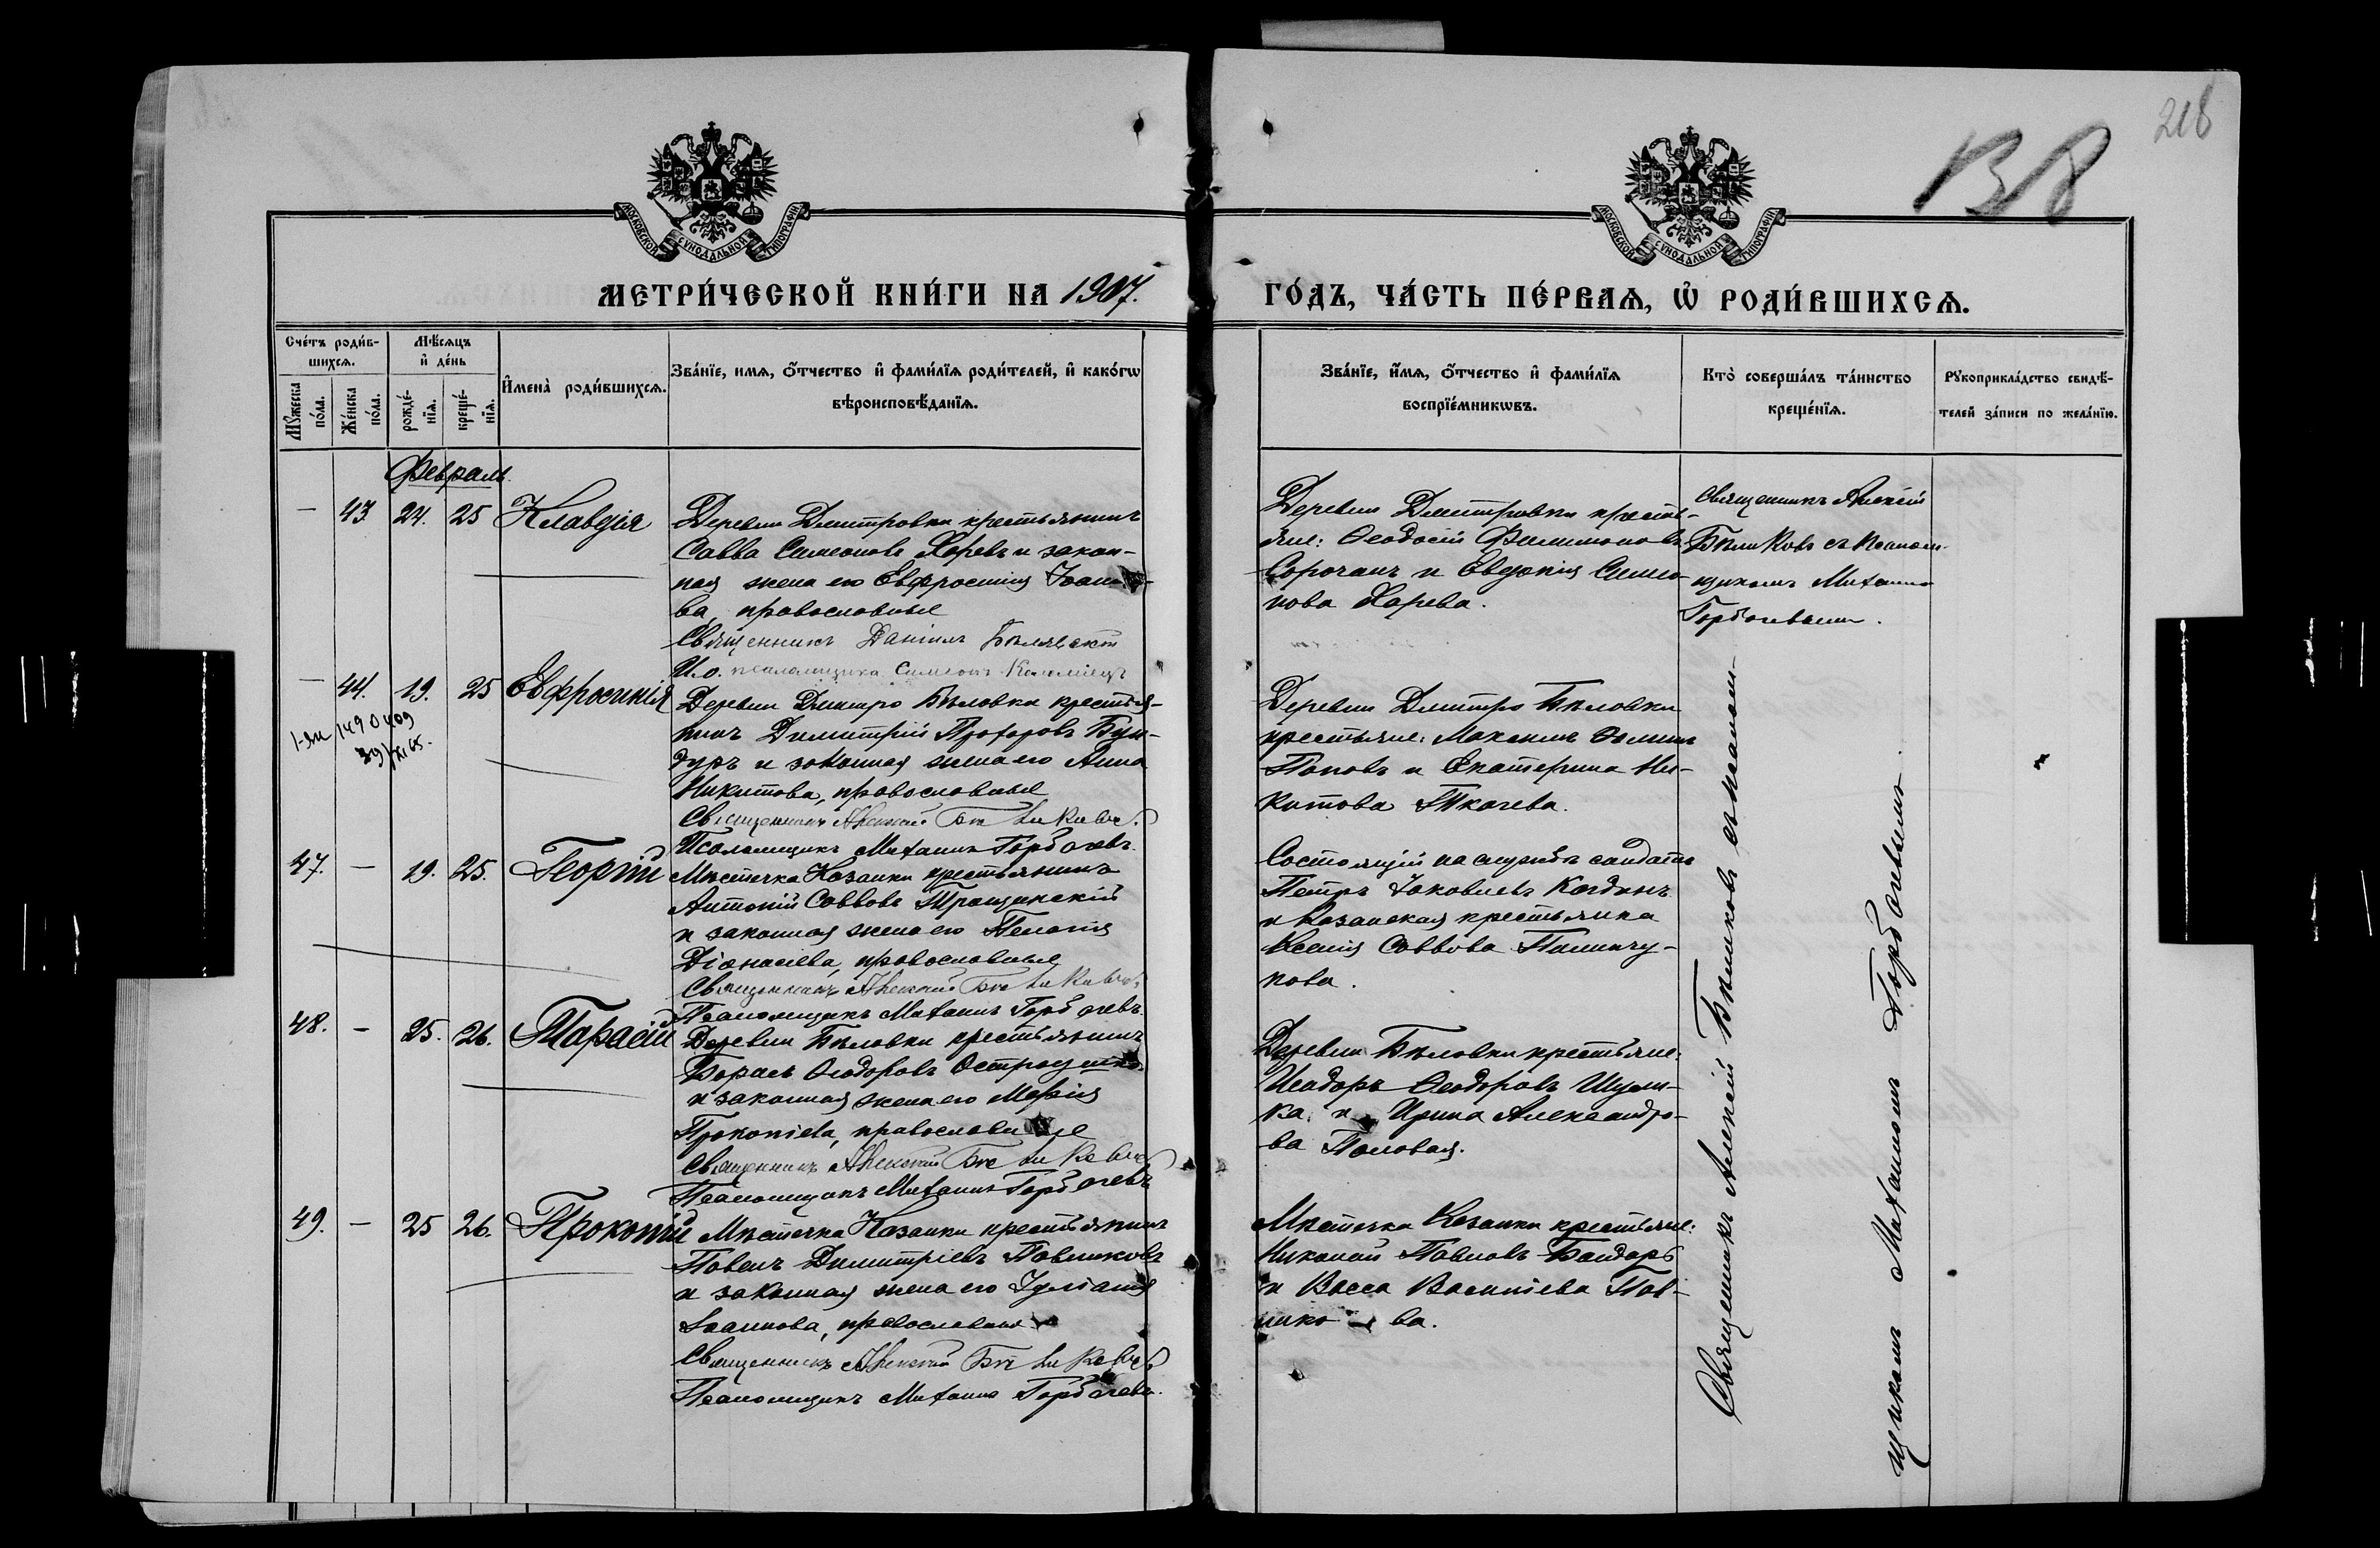 218
В8
МОСКОВСКОЙ СУНОДАЛЬНОЙ ТИПОГРАФІИ
МОСКОВСКОЙ СУНОДАЛЬНОЙ ТИПОГРАФІИ
МЕТРИ́ЧЕСКОЙ КНИ́ГИ НА 1907.
ГО́ДЪ, ЧА́СТЬ ПЕ́РВАЯ, Ѡ РОДИ́ВШИХСЯ.
Сче́тъ роди́в-
шихся.
Мѣ́сяцъ
и де́нь
Мꙋ́жеска
по́ла.
Же́нска
по́ла.
рожде́-
нїя.
креще́-
нїя.
Имена̀ роди́вшихся.
Зва́нїе, имя, о́тчество и фами́лїя роди́телей, и како́гѡ
вѣроисповѣ́данїя.
Зва́нїе, и́мя, о́тчество и фами́лїя
воспрїе́мникѡвъ.
Кто̀ соверша́лъ та́инство
креще́нїя.
Рꙋкоприкла́дство свидѣ́-
телей за́писи по жела́нїю.
Февраль.
— 43 24. 25 Клавдія
Деревни Дмитровки крестьянинъ
Савва Симеоновъ Харевъ и закон-
ная жена его Евфросинія Іоанно-
ва, православные
Священникъ Даніилъ
И.о. псаломщика Симеонъ
Деревни Дмитровки кресть-
яне: Ѳеодосій Филимоновъ
Сорочанъ и Евдокія Симео-
нова Харева.
Священникъ Алексій
Бѣликовъ съ псалом-
щикомъ Михаиломъ
Горбачевымъ.
— 44. 19. 25 Евфросинія
1-яи 149 0409
Деревни Дмитро Бѣловки крестья-
нинъ Димитрій Прохоровъ Бун-
дуръ и законная жена его Анна
Никитова, православные
Священникъ Алексій Бѣликовъ.
Псаломщикъ Михаилъ Горбачевъ.
Деревни Дмитро Бѣловки
крестьяне: Максимъ Ѳоминъ
Поповъ и Екатерина Ни-
китова Ткачева.
47. — 19. 25. Георгій
Мѣстечка Казанки крестьянинъ
Антоній Саввовъ Трощинскій
и законная жена его Пелагія
Діонисіева, православные
Священникъ Алексій Бѣликовъ.
Псаломщикъ Михаилъ Горбачевъ.
Состоящій на службѣ солдатъ
Петръ Іаковлевъ
и Казанская крестьянка
Ксенія Саввова
нова.
48. — 25. 26. Тарасій
Деревни Бѣловки крестьянинъ
Борисъ Ѳеодоровъ Остроушко
и законная жена его Марія
Прокопіева, православные
Священникъ Алексій Бѣликовъ
Псаломщикъ Михаилъ Горбачевъ
Деревни Бѣловки крестьяне:
Ѳеодоровъ Шули-
ка и Ирина Александро-
ва Половая.
49. — 25 26. Прокопій
Мѣстечка Казанки крестьянинъ
Павелъ Димитріевъ Павликовъ
и законная жена его Іуліанія
Іоаннова, православные
Священникъ Алексій Бѣликовъ
Псаломщикъ Михаилъ Горбачевъ.
Мѣстечка Казанки крестьяне:
Николай Павловъ Бондарь
и Васса Василіева Пав-
лико- ва.
Священникъ Алексій Бѣликовъ съ псалом-
щикомъ Михаиломъ Горбачевымъ